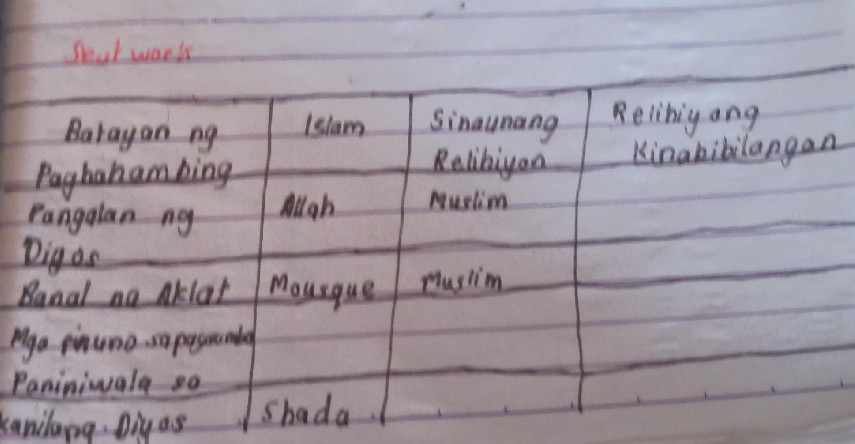 Seat work
Batayan ng Islam Sinaunang Relihiyang
Paghahambing Relihiyon Kinabibilangan
Pangalan ng Allah Muslim
Digos
Banal na Aklat Mousque Muslim
Mga pinuno sa
Paniniwala sa
kanilang Diyos Shada